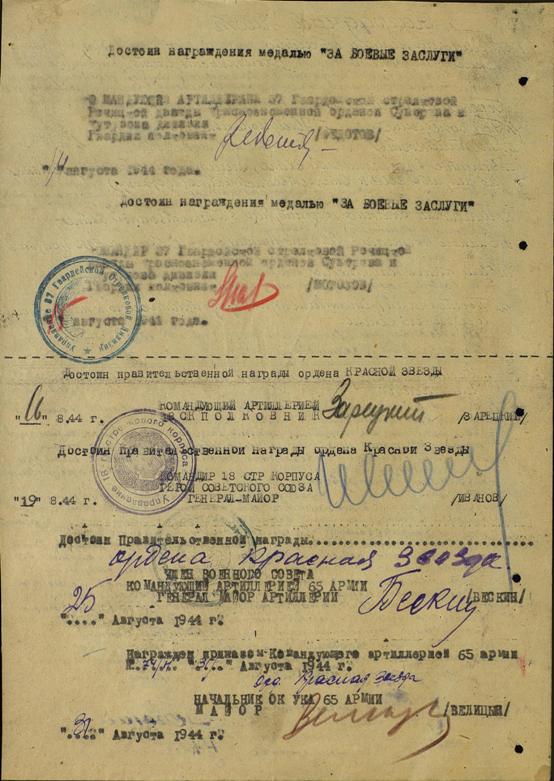 Достоин награждения медалью "ЗА БОЕВЫЕ ЗАСЛУГИ"
АРТИЛЛЕРИЕЙ 37 Гвардейской стрелковой
Речицкой дважды Краснознаменной орденов Суворова и
дивизии
Гвардии полковник /ФЕДОТОВ/
августа 1944 года.
Достоин награждения медалью "ЗА БОЕВЫЕ ЗАСЛУГИ"
37 Гвардейской стрелковой Речицкой
Краснознаменной орденов Суворова и
дивизии
Гвардии полковник
августа 1944 года.
Управление 37 Гвардейской Стрелковой Дивизии
Достоин правительственной награды ордена КРАСНОЙ ЗВЕЗДЫ
КОМАНДУЮЩИЙ АРТИЛЛЕРИЕЙ
"16" 8.44 г. 18СК ПОЛКОВНИК Зарецкий /ЗАРЕЦКИЙ/
Управление 18 стрелкового корпуса
Достоин правительственной награды ордена Красной Звезды
КОМАНДИР 18 СТР КОРПУСА
ГЕРОЙ СОВЕТСКОГО СОЮЗА
"19" 8.44 г. ГЕНЕРАЛ-МАЙОР /ИВАНОВ/
Достоин Правительственной награды
ордена Красная Звезда
ЧЛЕН ВОЕННОГО СОВЕТА
КОМАНДУЮЩИЙ АРТИЛЛЕРИЕЙ 65 АРМИИ
ГЕНЕРАЛ МАЙОР АРТИЛЛЕРИИ Бескин /БЕСКИН/
25
"...." Августа 1944 г.
Награжден приказом Командующего артиллерией 65 армии
"30" Августа 1944 г.
орд. Красная Звезда
НАЧАЛЬНИК ОК УКА 65 АРМИИ
МАЙОР /ВЕЛИЦЫН/
"30" Августа 1944 г.